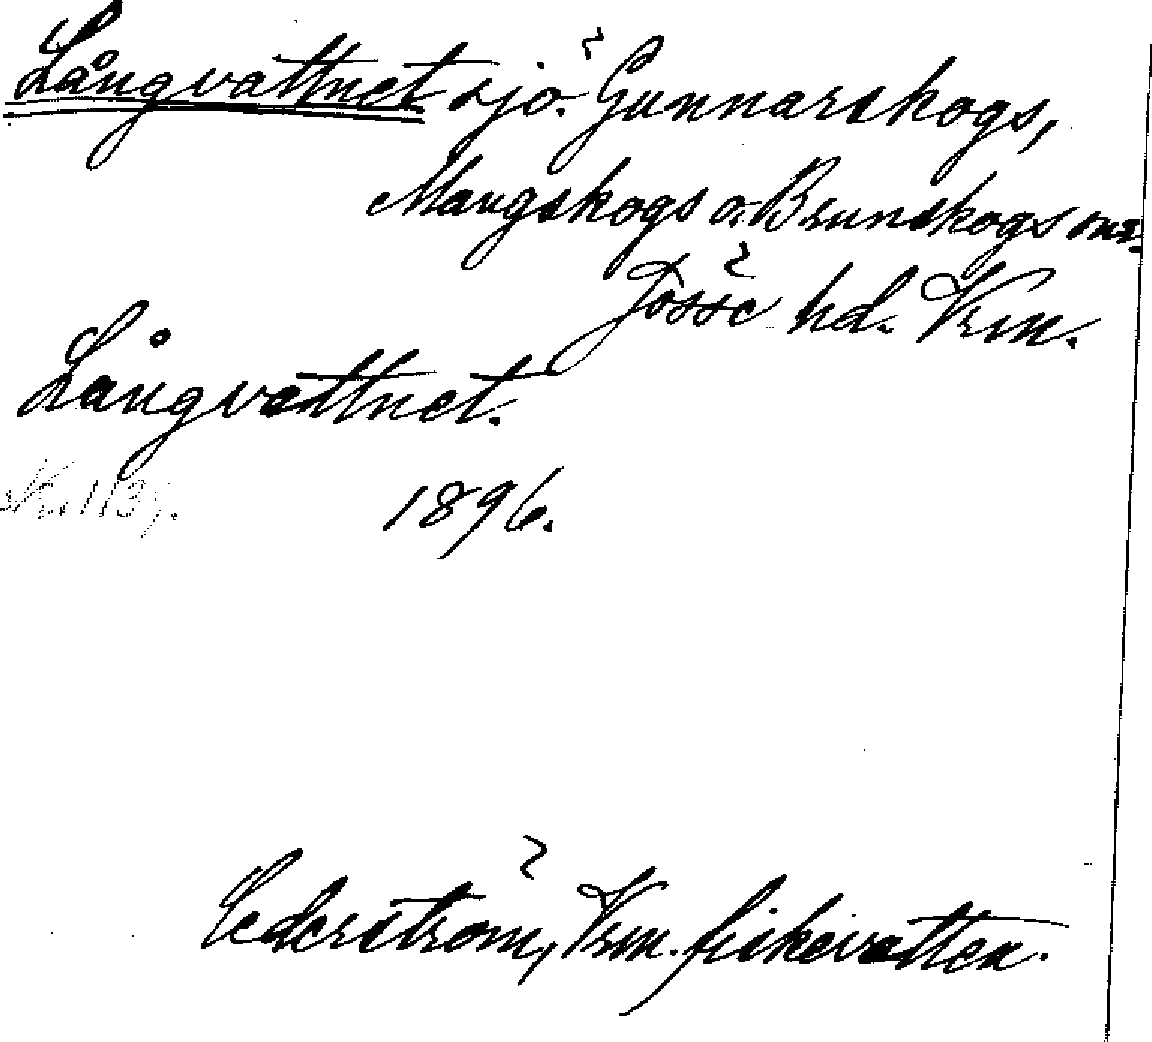 Långvattnet sjö. Gunnarskogs,
Mangskogs o. Brunskogs snr.
Jösse hd. Vrm.
Långvattnet.
1896.
Cederström, Vrm. fiskevatten.